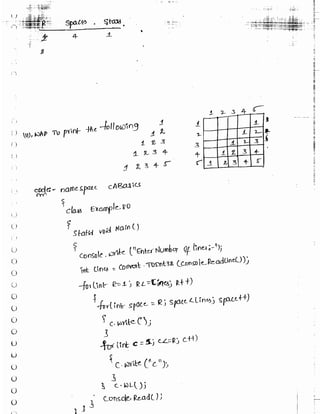 R spaces . stars
4 1
WAP To print the following
1
1 2
1 2 3
1 2 3 4
1 2 3 4 5
1 2 3 4 5
1 1
2 1 2
3 1 2 3
4 1 2 3 4
5 1 2 3 4 5
code:- namespace CABasics
{
class Example.80
{
static void Main()
{
Console.write ("Enter Number of lines:-");
int lines = Convert.ToInt32 (Console.ReadLine());
for(int R=1; R<=lines; R++)
{
for(int space = R; space<lines; space++)
{ c.write(" ");
}
for (int c = 1; c<=R; c++)
{
C.write ("c");
}
} c.WL();
Console.Read();
} } }